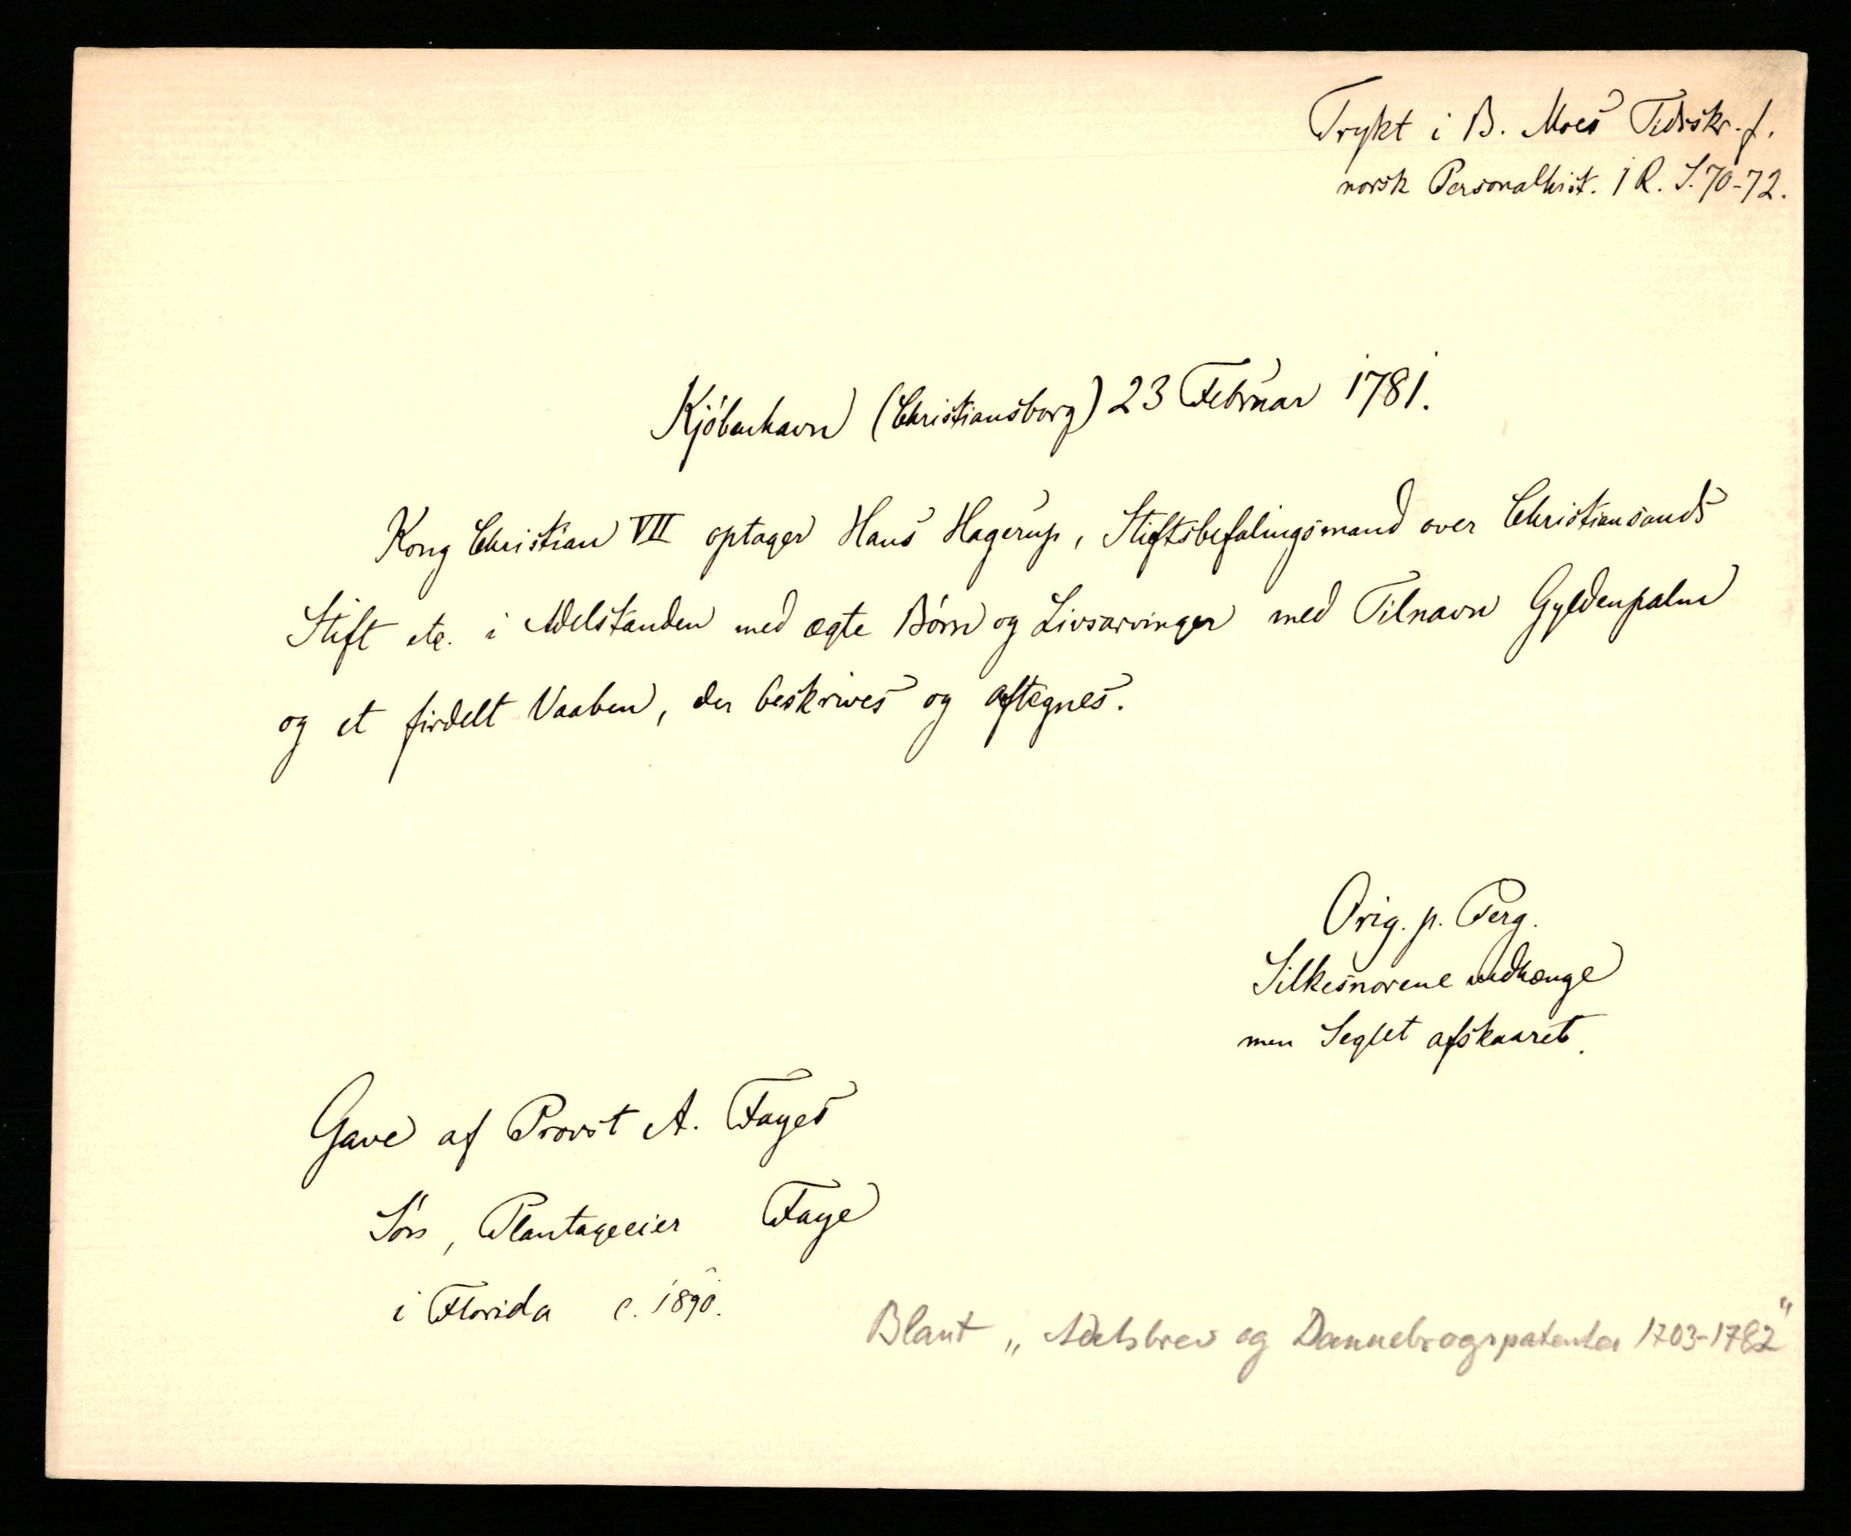 Trykt i B. Moes Tidsskr. f.
norsk Personalhist. 1 R. S. 70-72.
Kjóbenhavn (Christiansborg) 23 Februar 1781.
Kong Christian VII optager Hans Hagerup, Stiftsbefalingsmand over Christiansands
Stift etc. i Adelstanden med ægte Börn og Livsarvinger med Tilnavn Gyldenpalm
og et firdelt Vaaben, der beskrives og aftegnes.
Orig. p. Perg.
Silkesnorene vedhænge
men Seglet afskaaret.
Gave af Provst A. Fayes
Sön, Plantageeier Faye
i Florida c. 1890.
Blant „Adelsbrev og Dannebrogspatenter 1703-1782"